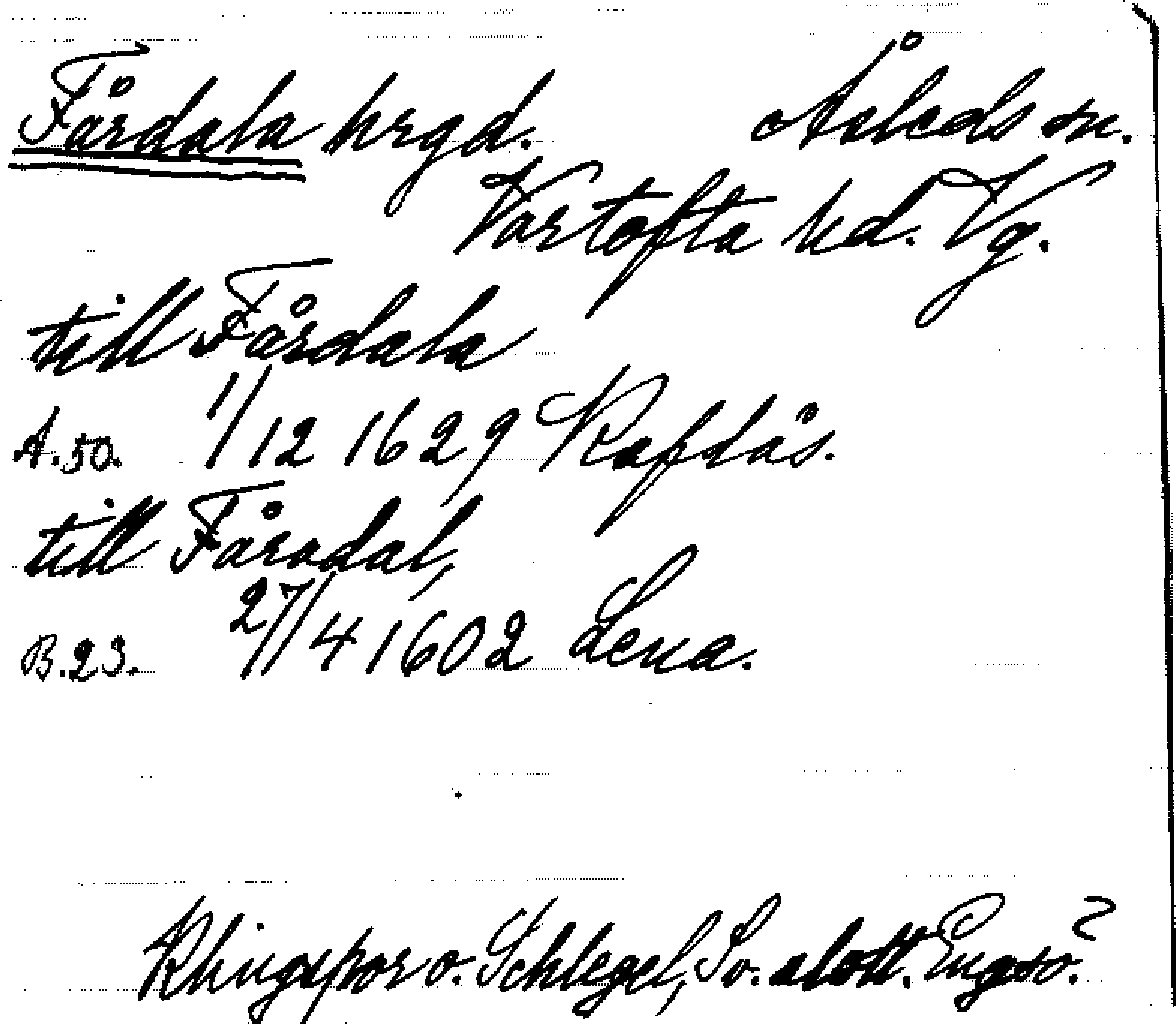 Fårdala hrgd. Åsleds sn.
Vartofta hd. Vg.
till Fårdala
A.50. 1/12 1629 Rafdås.
till Fåradal,
B.23. 27/4 1602 Lena.
Klingspor o. Schlegel, Sv. slott. Engsö?